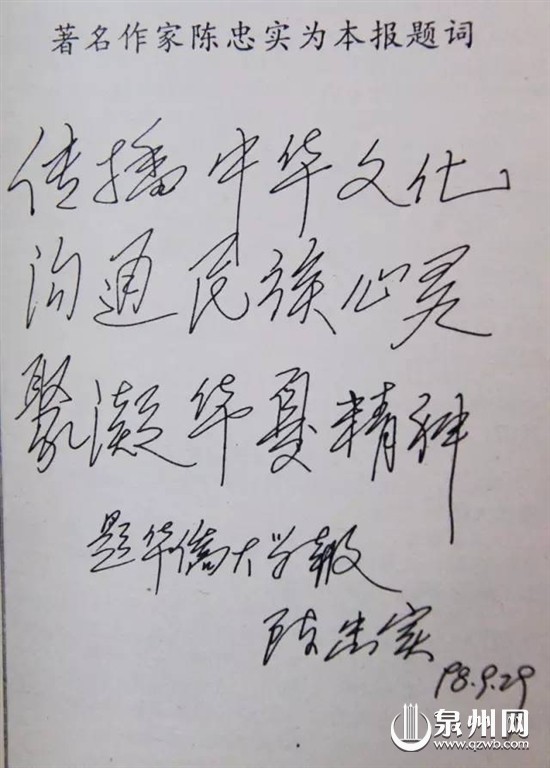 著名作家陈忠实为本报题词
传播中华文化
沟通民族心灵
聚凝华夏精神
题华侨大学报
陈忠实
98.9.29
泉州网
www.qzwb.com